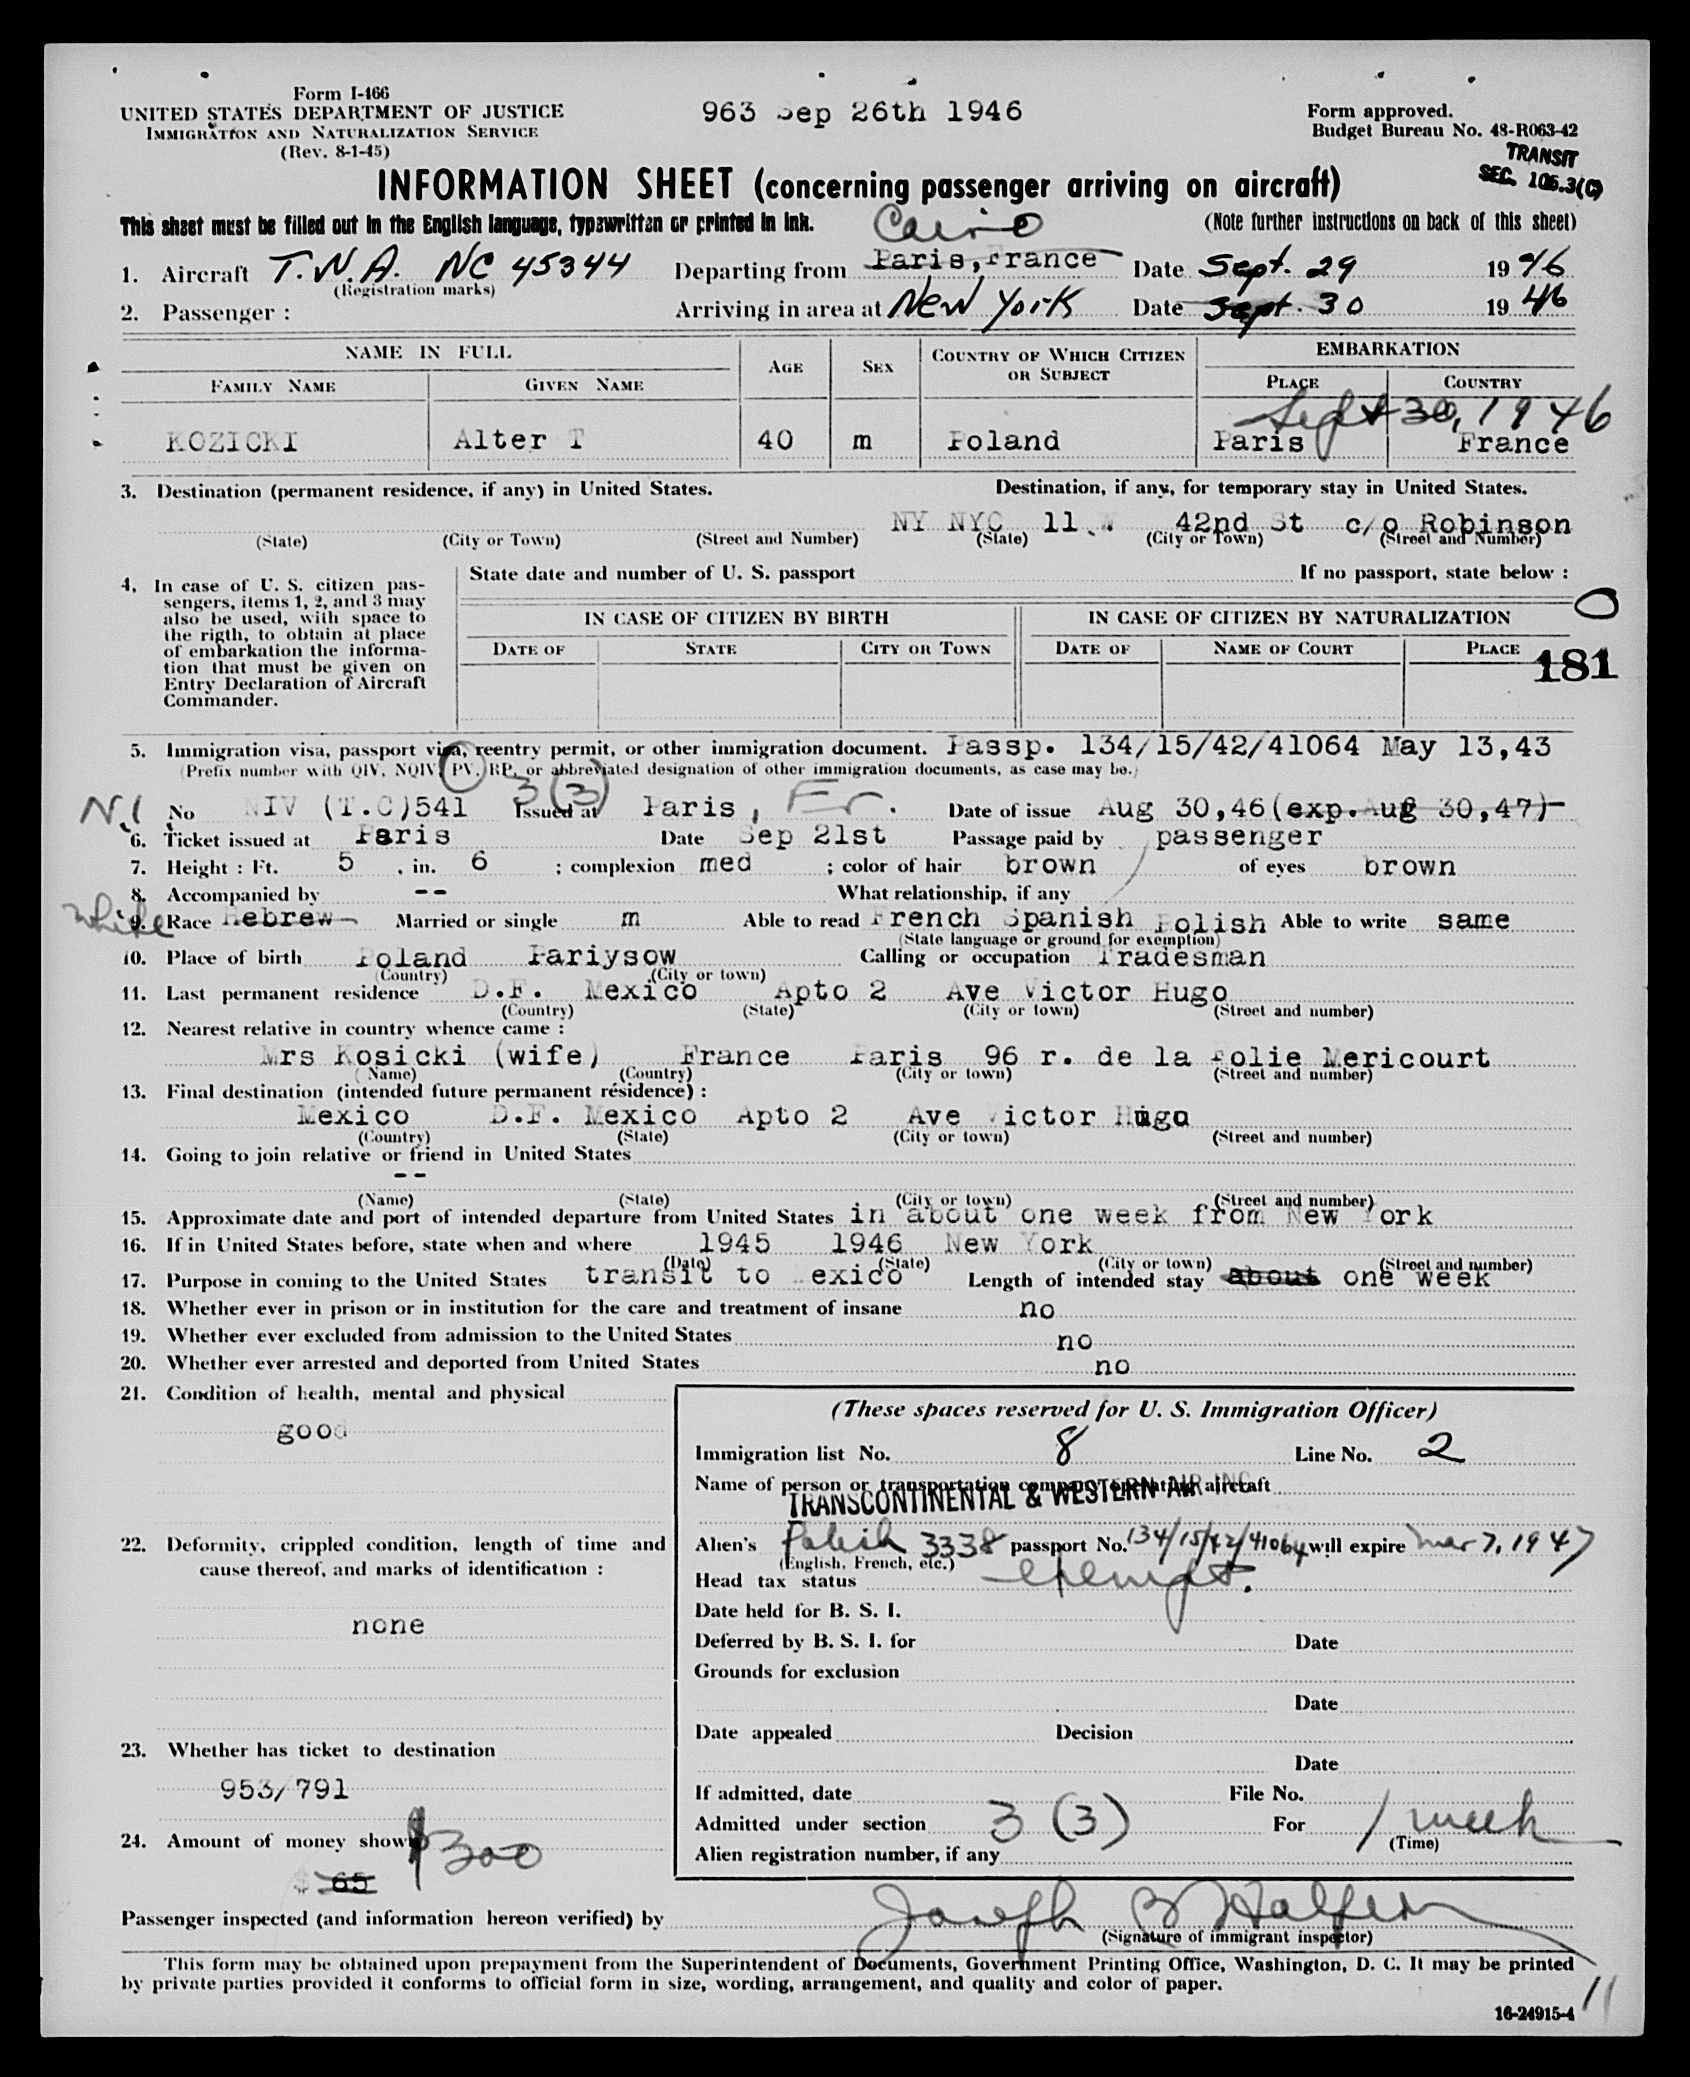 Form I-466
UNITED STATES DEPARTMENT OF JUSTICE
IMMIGRATION AND NATURALIZATION SERVICE
(Rev. 8-1-45)
963 Sep 26th 1946
Form approved.
Budget Bureau No. 48-R063-42
TRANSIT
SEC. 105.3(C)
INFORMATION SHEET (concerning passenger arriving on aircraft)
This sheet must be filled out in the English language, typewritten or printed in ink.
(Note further instructions on back of this sheet)
Cairo
1. Aircraft T.W.A. NC 45344 Departing from Paris, France Date Sept. 29 1946
(Registration marks)
2. Passenger : Arriving in area at New York Date Sept. 30 1946
NAME IN FULL AGE SEX COUNTRY OF WHICH CITIZEN OR SUBJECT EMBARKATION
FAMILY NAME GIVEN NAME PLACE COUNTRY
Sept 30, 1946
KOZICKI Alter T 40 m Poland Paris France
3. Destination (permanent residence, if any) in United States. Destination, if any, for temporary stay in United States.
NY NYC 11 W 42nd St c/o Robinson
(State) (City or Town) (Street and Number) (State) (City or Town) (Street and Number)
4. In case of U. S. citizen pas-
sengers, items 1, 2, and 3 may
also be used, with space to
the rigth, to obtain at place
of embarkation the informa-
tion that must be given on
Entry Declaration of Aircraft
Commander.
State date and number of U. S. passport If no passport, state below :
IN CASE OF CITIZEN BY BIRTH IN CASE OF CITIZEN BY NATURALIZATION
DATE OF STATE CITY OR TOWN DATE OF NAME OF COURT PLACE
181
5. Immigration visa, passport visa, reentry permit, or other immigration document. Passp. 134/15/42/41064 May 13,43
(Prefix number with QIV, NQIV, PV, RP, or abbreviated designation of other immigration documents, as case may be.)
3 (3)
N.I. No NIV (T.C)541 Issued at Paris, Fr. Date of issue Aug 30,46(exp. Aug 30,47)
6. Ticket issued at Paris Date Sep 21st Passage paid by passenger
7. Height : Ft. 5 , in. 6 ; complexion med ; color of hair brown of eyes brown
8. Accompanied by -- What relationship, if any
white
9. Race Hebrew Married or single m Able to read French Spanish Polish Able to write same
(State language or ground for exemption)
10. Place of birth Poland Pariysow Calling or occupation Tradesman
(Country) (City or town)
11. Last permanent residence D.F. Mexico Apto 2 Ave Victor Hugo
(Country) (State) (City or town) (Street and number)
12. Nearest relative in country whence came :
Mrs Kosicki (wife) France Paris 96 r. de la Folie Mericourt
(Name) (Country) (City or town) (Street and number)
13. Final destination (intended future permanent résidence) :
Mexico D.F. Mexico Apto 2 Ave Victor Hugo
(Country) (State) (City or town) (Street and number)
14. Going to join relative or friend in United States
--
(Name) (State) (City or town) (Street and number)
15. Approximate date and port of intended departure from United States in about one week from New York
16. If in United States before, state when and where 1945 1946 New York
(Date) (State) (City or town) (Street and number)
17. Purpose in coming to the United States transit to Mexico Length of intended stay about one week
18. Whether ever in prison or in institution for the care and treatment of insane no
19. Whether ever excluded from admission to the United States no
20. Whether ever arrested and deported from United States no
21. Condition of health, mental and physical
good
22. Deformity, crippled condition, length of time and
cause thereof, and marks of identification :
none
23. Whether has ticket to destination
953/791
24. Amount of money shown $300
$ 65
(These spaces reserved for U. S. Immigration Officer)
Immigration list No. 8 Line No. 2
Name of person or transportation company operating aircraft
TRANSCONTINENTAL & WESTERN AIR INC
Alien's Polish 3338 passport No. 134/15/42/41064 will expire Mar 7, 1947
(English, French, etc.)
Head tax status exempt.
Date held for B. S. I.
Deferred by B. S. I. for Date
Grounds for exclusion
Date
Date appealed Decision
Date
If admitted, date File No.
Admitted under section 3 (3) For 1 week
(Time)
Alien registration number, if any
Passenger inspected (and information hereon verified) by Joseph B Halpern
(Signature of immigrant inspector)
This form may be obtained upon prepayment from the Superintendent of Documents, Government Printing Office, Washington, D. C. It may be printed
by private parties provided it conforms to official form in size, wording, arrangement, and quality and color of paper.
16-24915-4
11